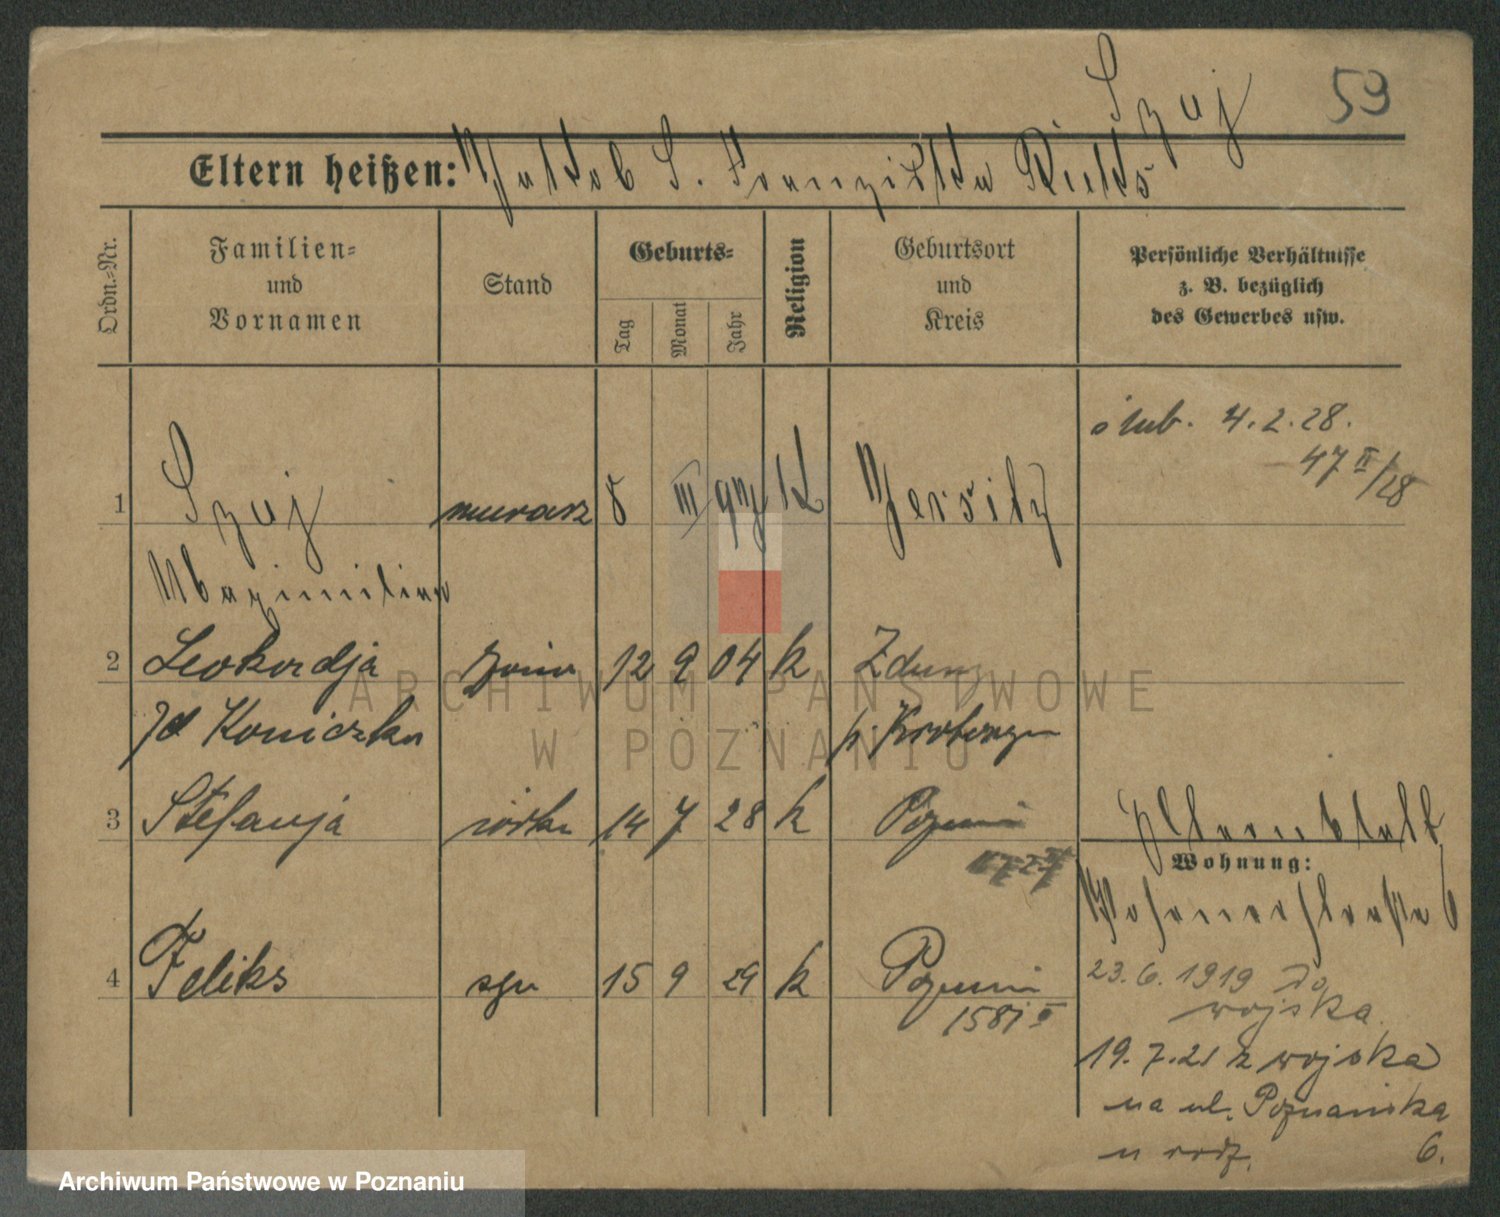 Szuj
59
Eltern heißen: Jakob S. Franziska Richts
Ordn.-Nr.
Familien- und Vornamen
Stand
Geburts-
Tag
Monat
Jahr
Religion
Geburtsort und Kreis
Persönliche Verhältnisse z. B. bezüglich des Gewerbes usw.
ślub. 4.2.28.
47 II/28
1 Szuj murarz 8 III K Jersitz
Maximilian
2 Leokardja żona 12 9 04 k Zduny
Id Koniczka p. Krotoszyn
3 Stefanja córka 14 7 28 k Poznań
Elternstatt
Wohnung:
Posenerstrasse 6
4 Feliks syn 15 9 29 k Poznań
1581
23.6.1919 do
wojska
19.7.21 z wojska
na ul. Poznańska
u rodz. 6.
ARCHIWUM PAŃSTWOWE
W POZNANIU
Archiwum Państwowe w Poznaniu